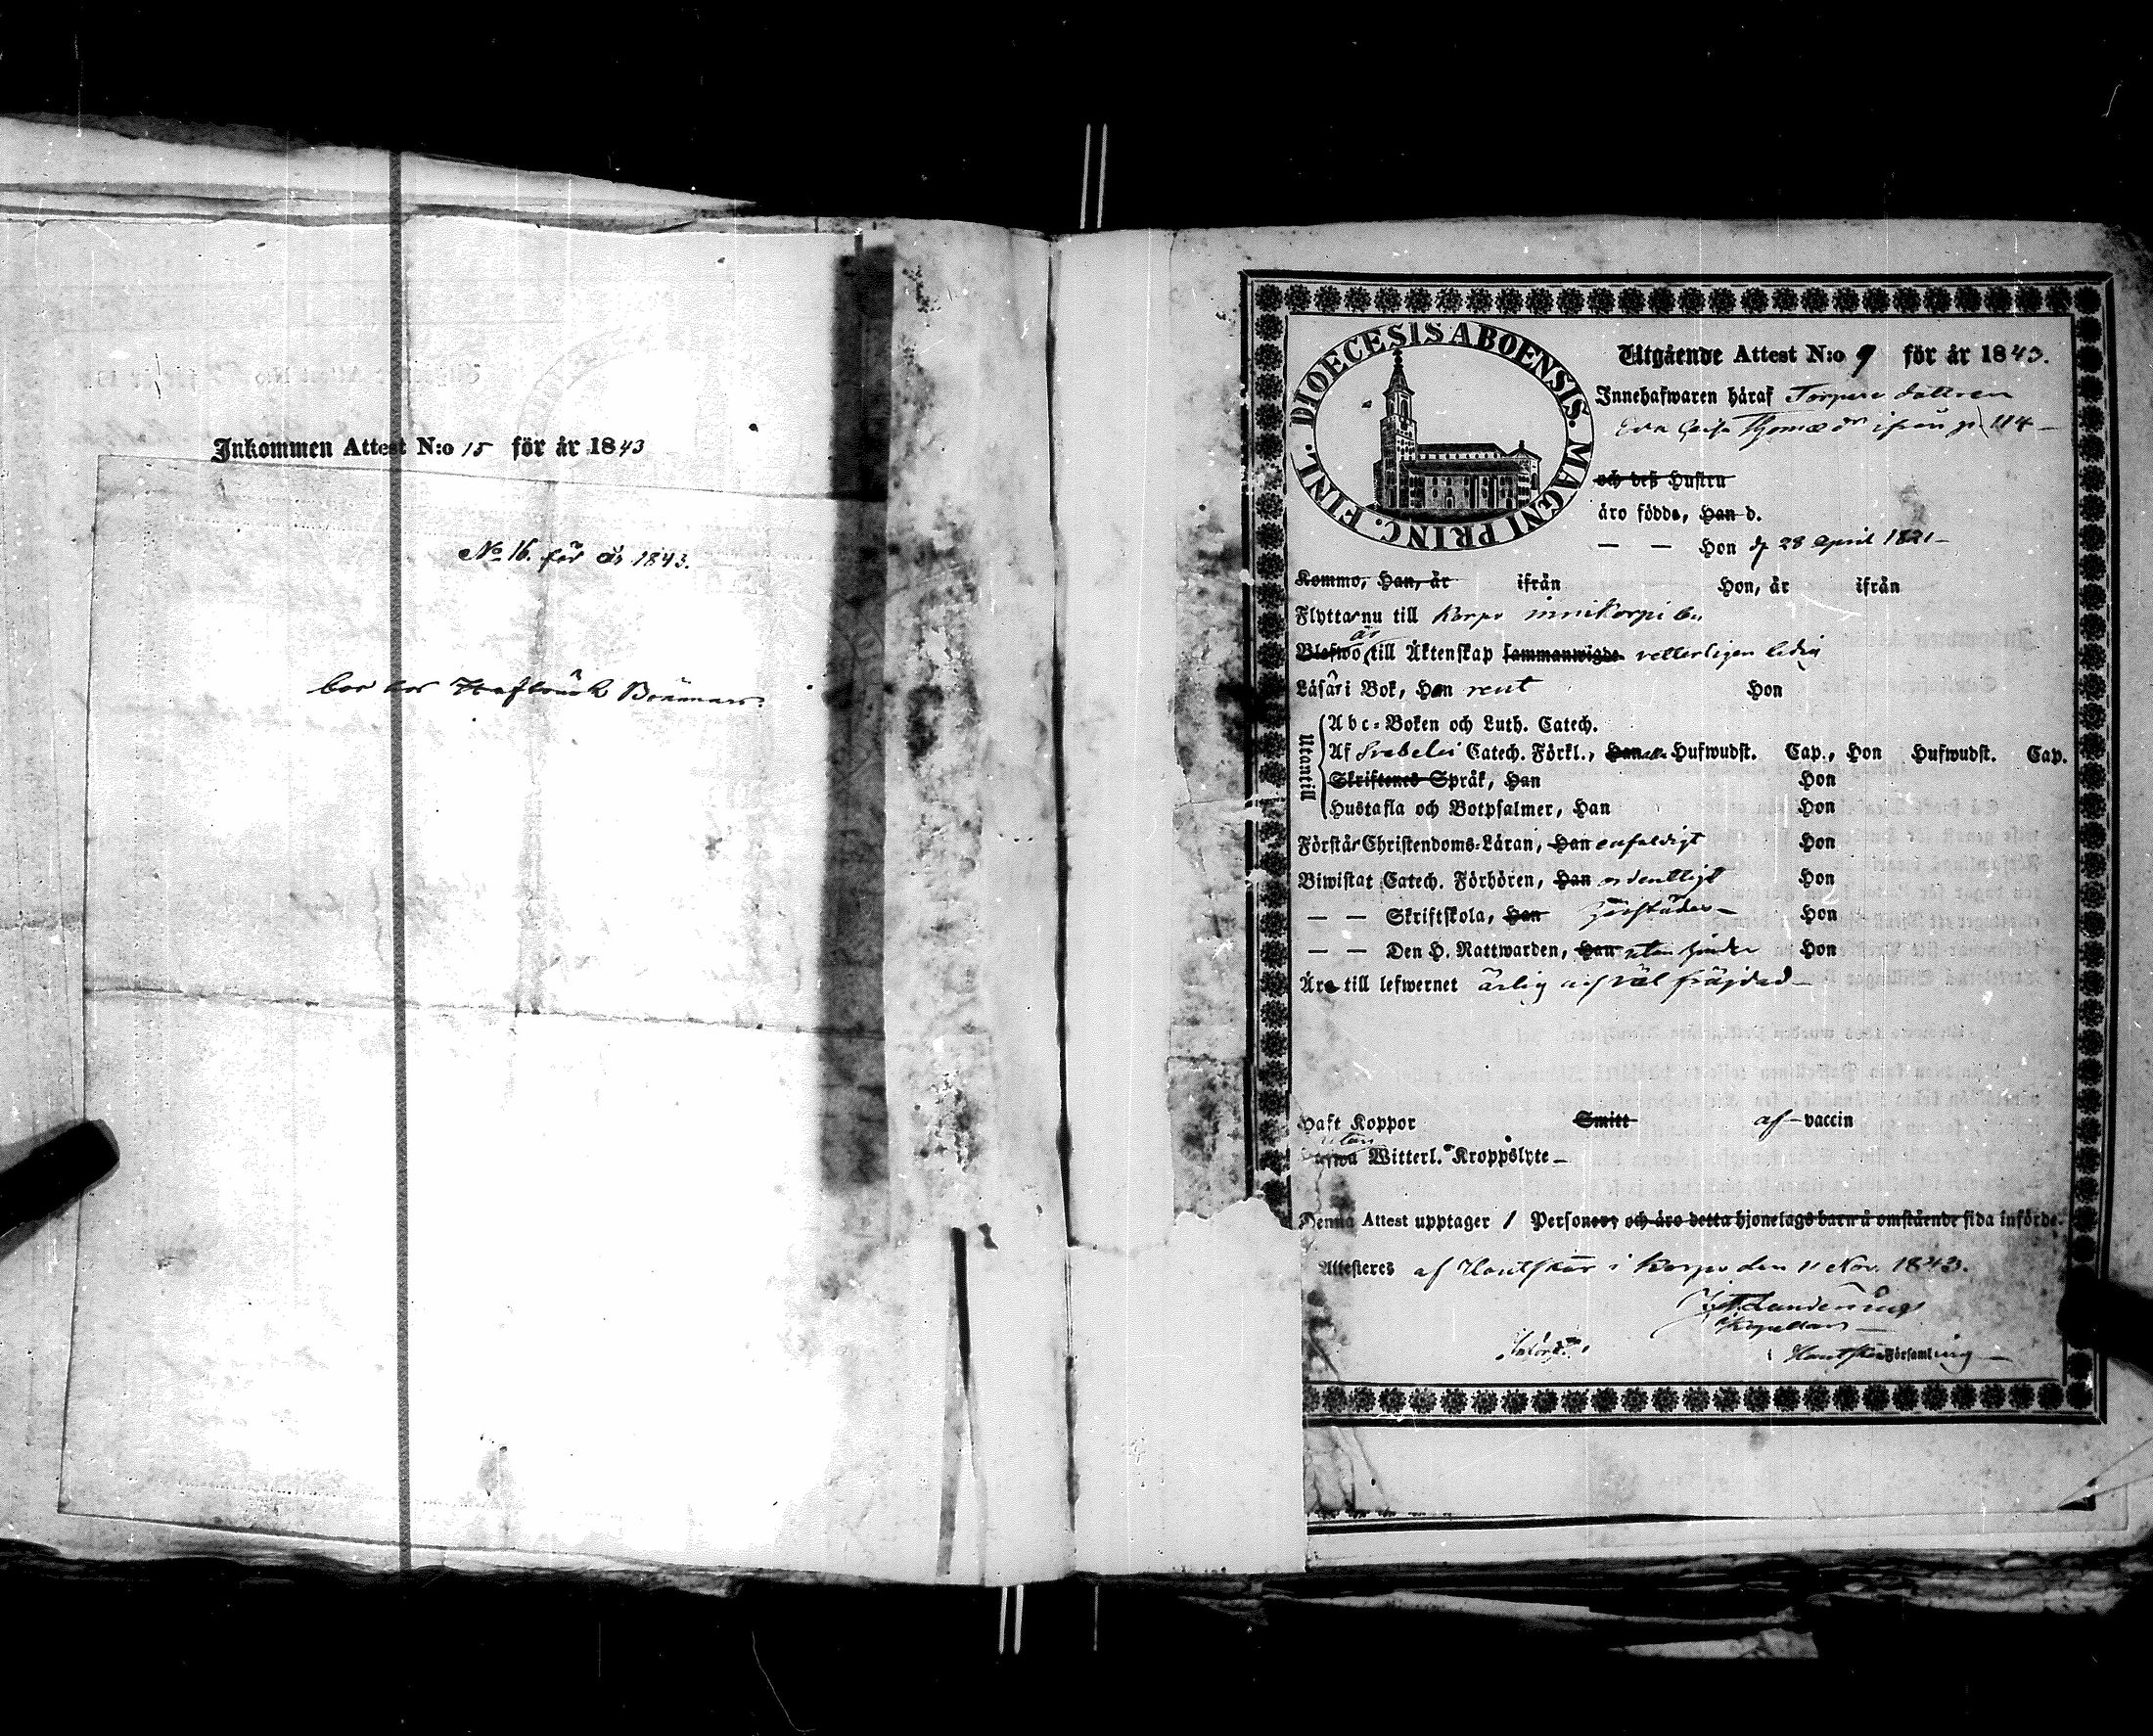 Inkommen Attest N:o 15 för år 1843
No 16. för år 1843.
bor hos
DIOECESIS ABOENSIS. MAGNI PRINC. FINL.
Utgående Attest N:o 9 för år 1843.
Innehafwaren häraf Torpare dottren
Eva Thomædr ifrån p 114
och deß Hustru
äro födde, Han d.
— — Hon d 28 April 1821
Kommo, Han, år ifrån Hon, år ifrån
Flytta nu till Korpo
är
Blefwo till Äktenskap sammanwigde vetterligen ledig
Läsa i Bok, Han rent Hon
Utantill
Abc-Boken och Luth. Catech.
Af Svebelii Catech. Förkl., Han Hufwudst. Cap., Hon Hufwudst. Cap.
Skriftenes Språk, Han Hon
Hustafla och Botpsalmer, Han Hon
Förstår Christendoms-Läran, Han enfaldigt Hon
Biwistat Catech. Förhören, Han ordentligt Hon
— — Skriftskola, Han Hon
— — Den H. Nattwarden, Han utan hinder Hon
Äro till lefwernet ärlig och väl frägdad
Haft Koppor Smitt af vaccin
utan
Witterl. Kroppslyte
Denna Attest upptager 1 Personer, och äro detta hjonelags barn å omstående sida införde.
Attesteres af Houtskär i Korpo den 11 Nov. 1843.
Kapellan
i Houtskär Församling